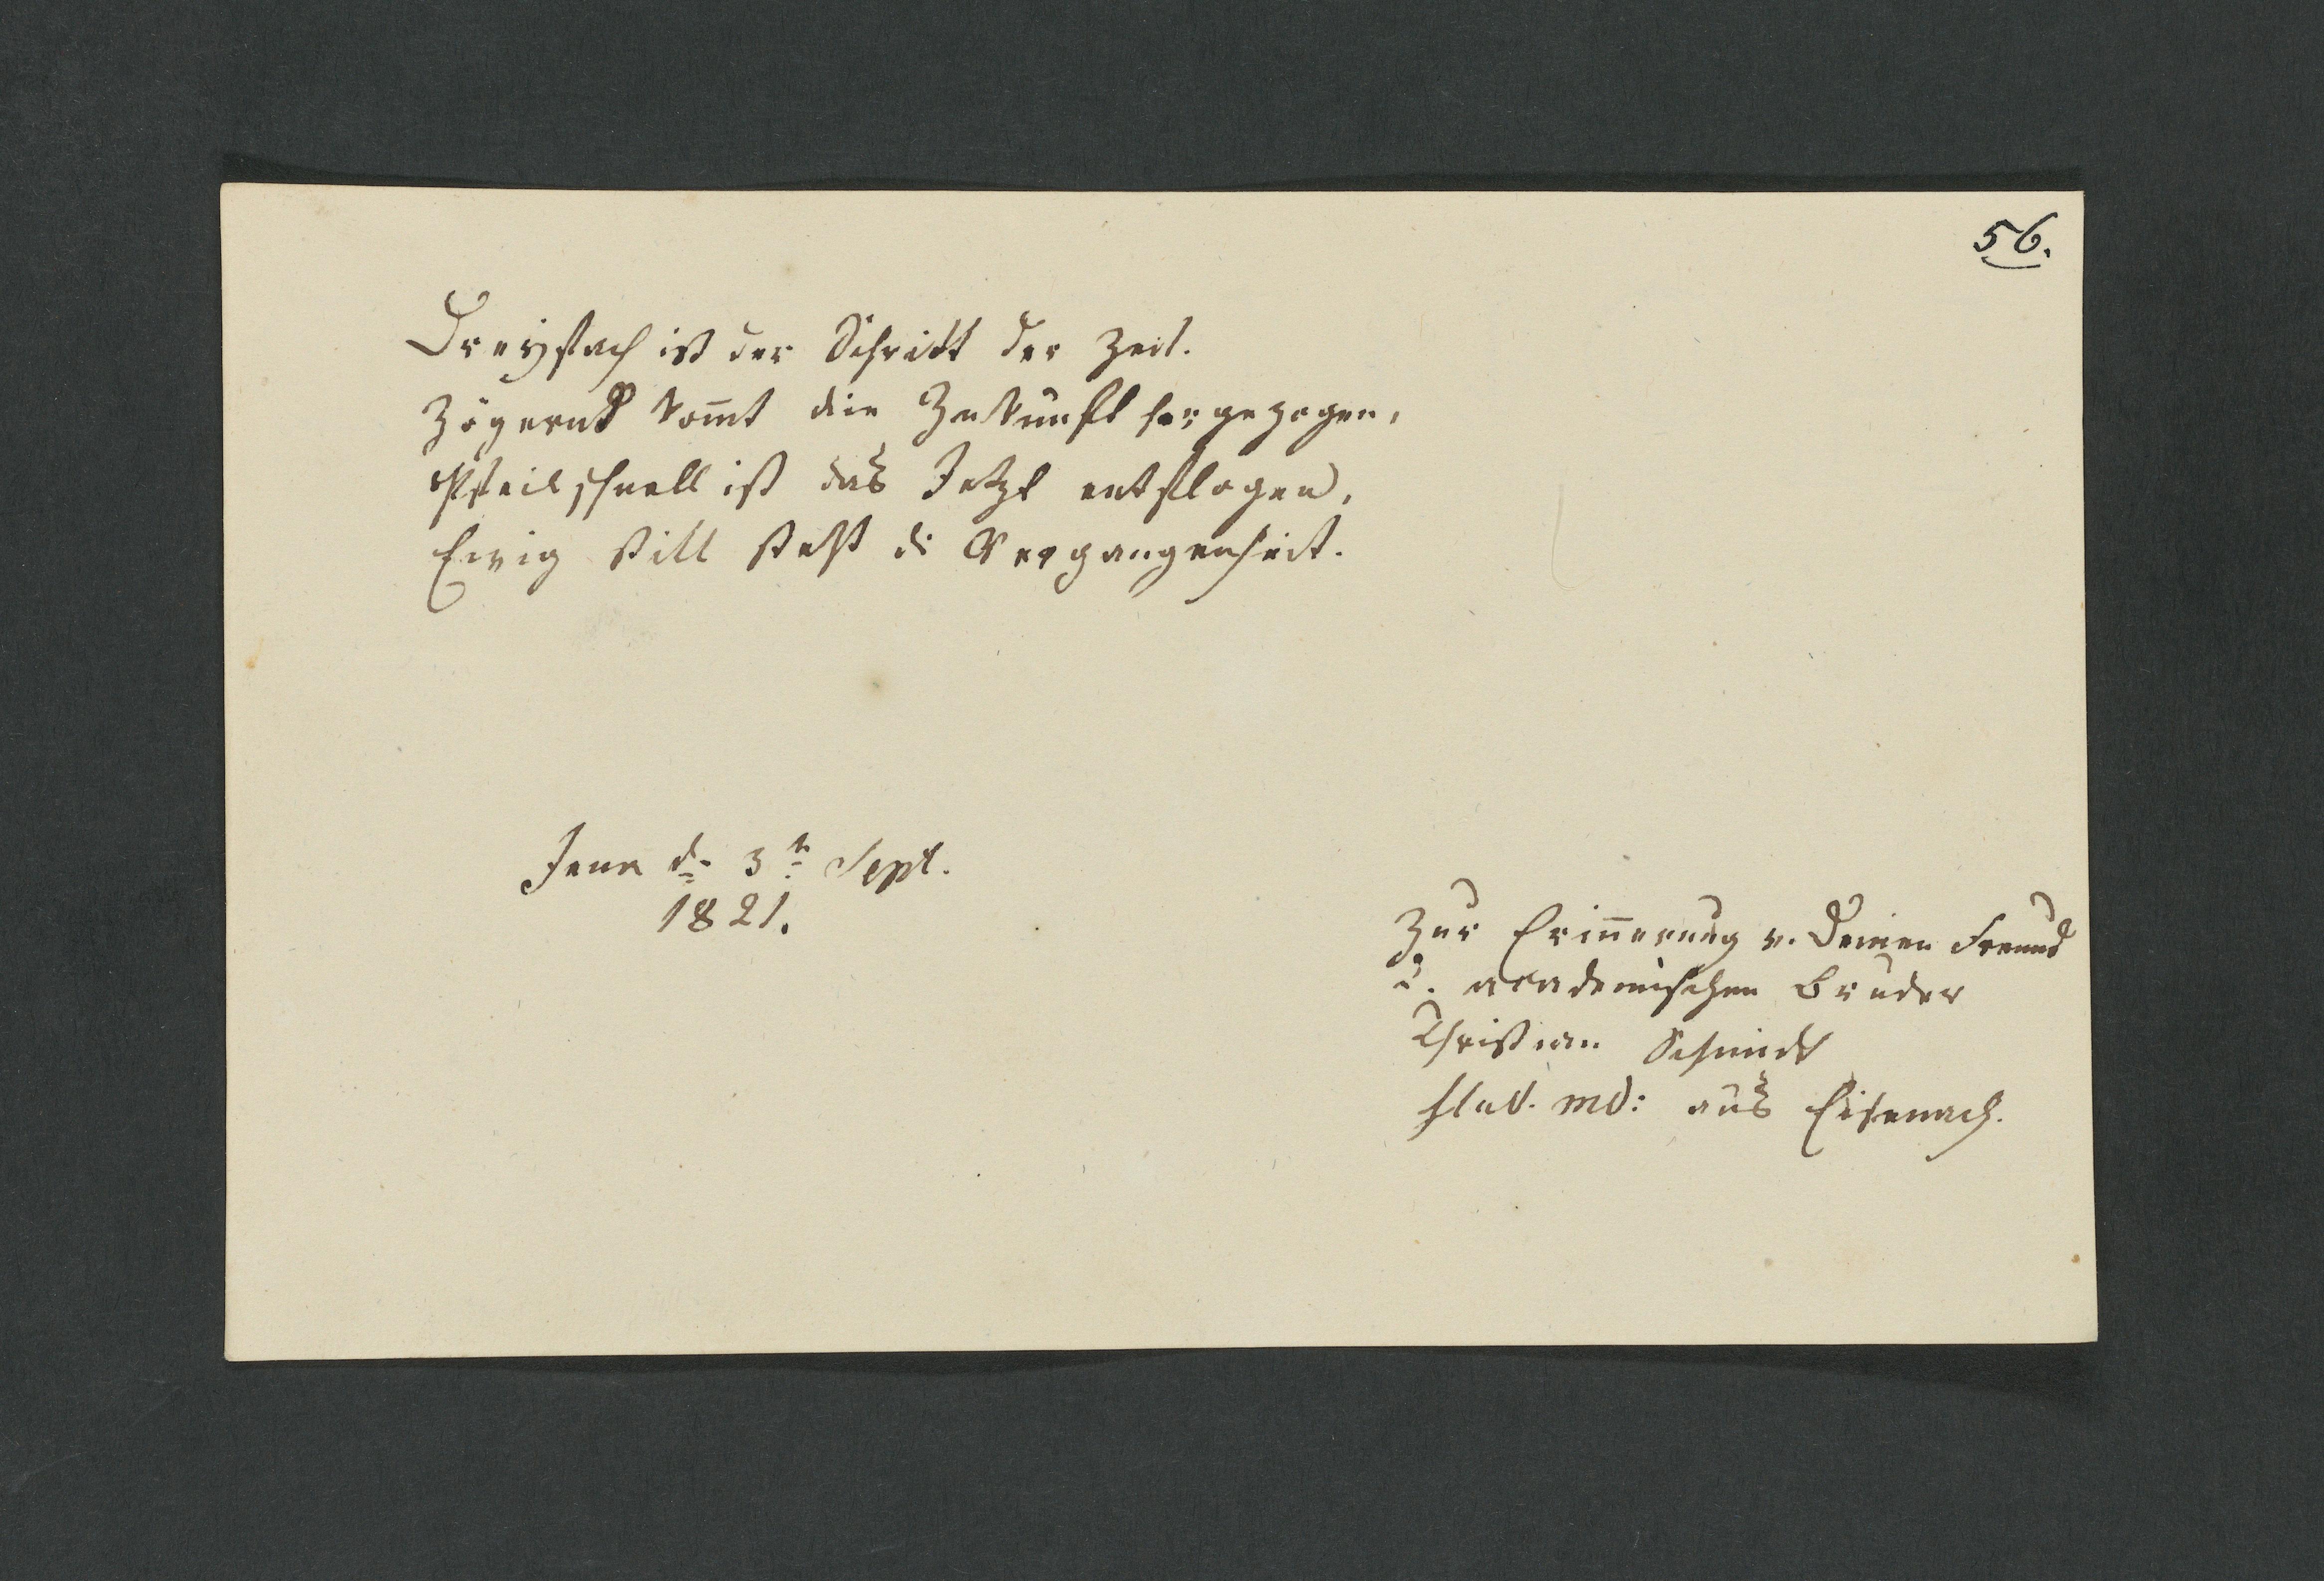 56.
Dreyfach ist der Schritt der Zeit.
Zögernd kom̅t die Zukunft hergezogen,
Pfeilschnell ist das Jetzt entflogen,
Ewig still steht di Vergangenheit.
Jena d. 3t Sept.
1821.
Zur Erin̅erung v. Deinen Freund
u. academischen Bruder
Christian Schmidt
stud. md: aus Eisenach.